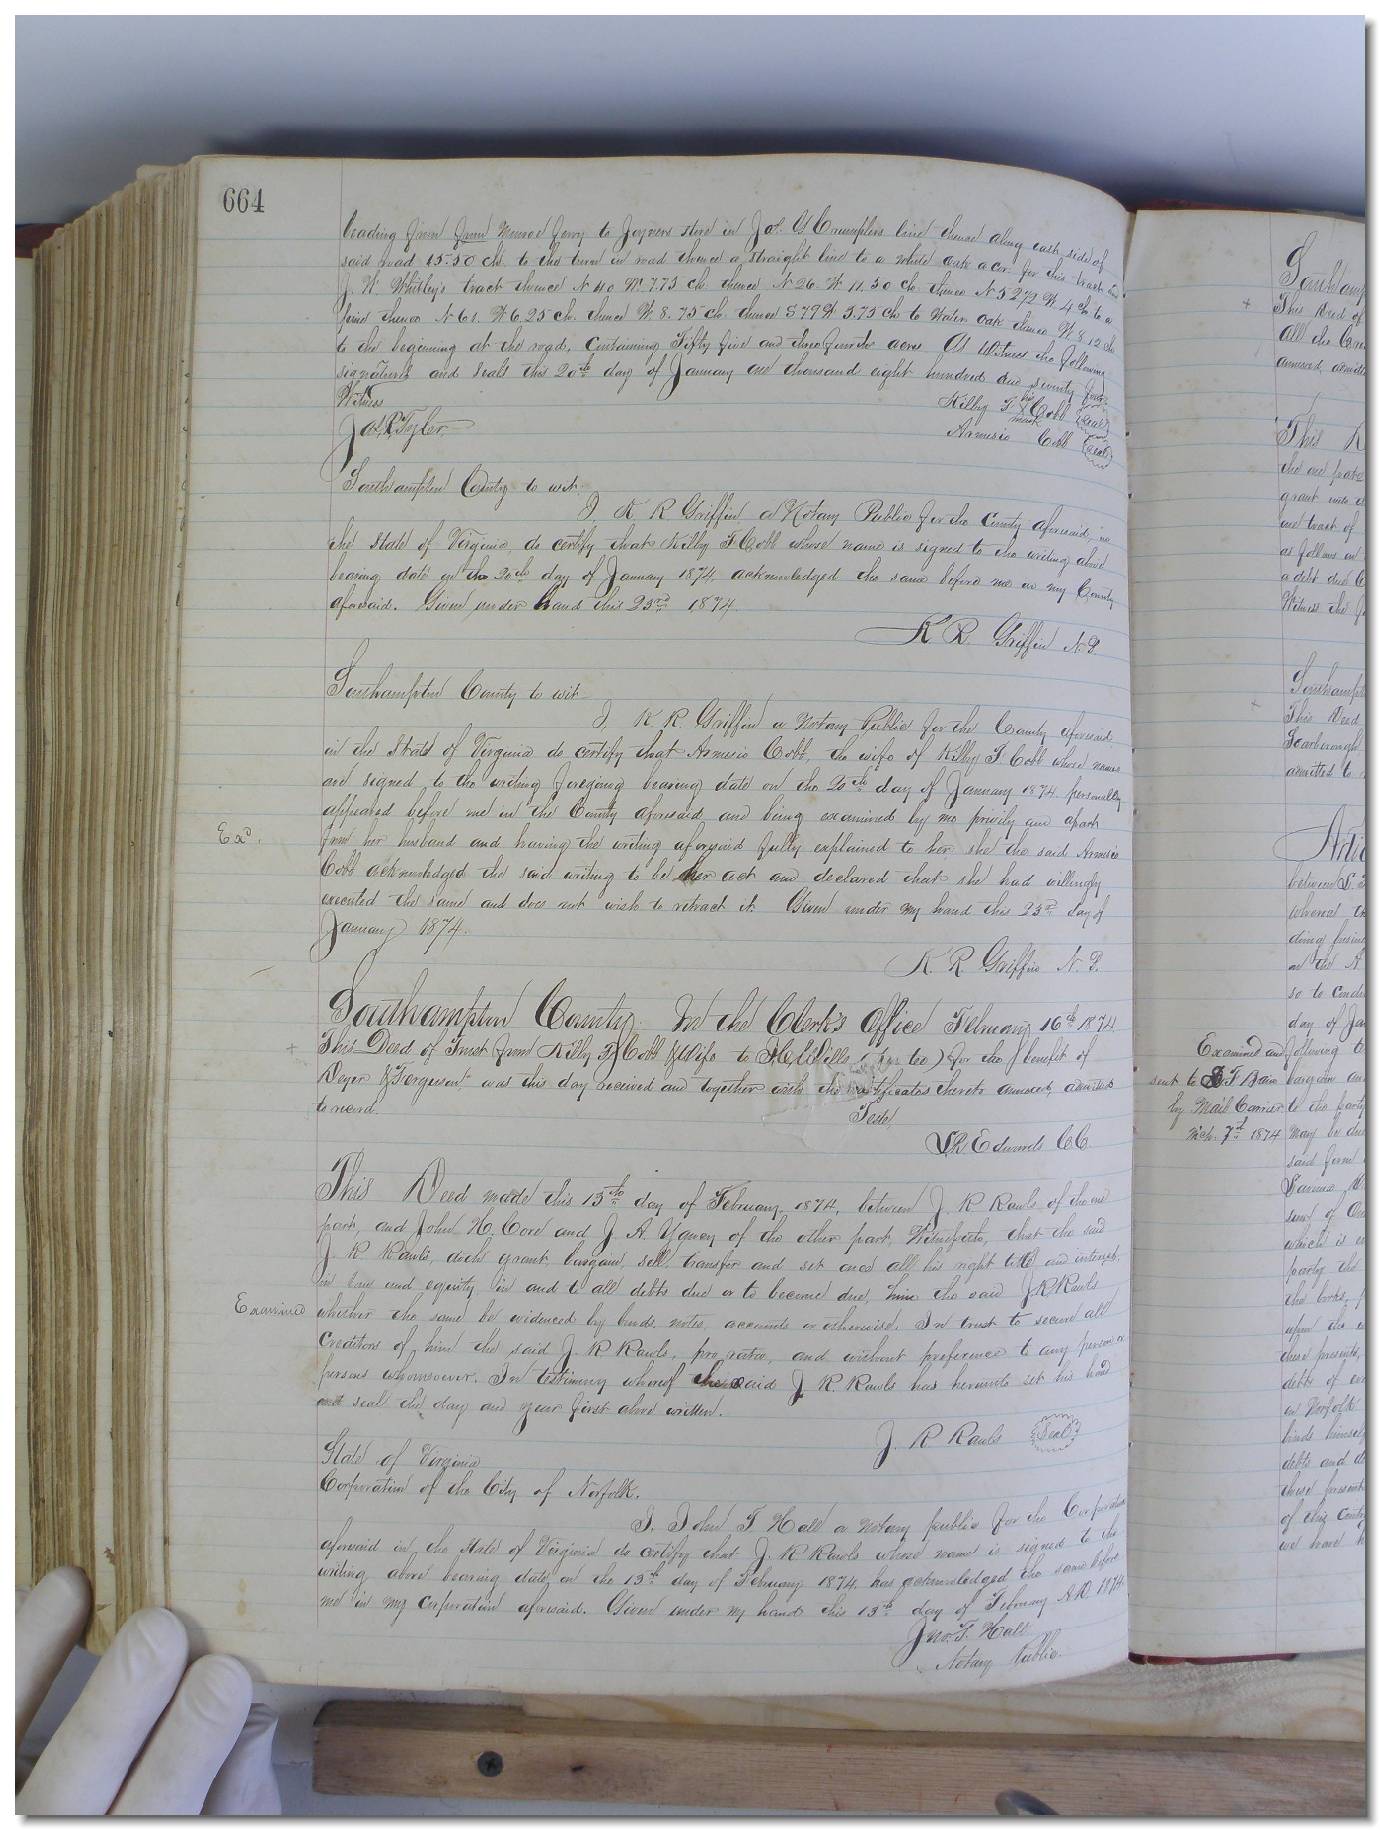 664
leading from from Monroe ferry to Joyners store in Jos. G Crumplers line thence along east side of
said road 15.50 ch. to the turn in road thence a straight line to a white oak a cor. for this tract and
J. W Whitley's tract thence N 40 W 7.73 ch. thence N 26 W 11.50 ch thence N 52 1/2 W. 4 ch to a
thence N 61. W 6.25 ch. thence W 8.75 ch. thence S 79 W 3.75 ch to Water Oak thence W 8.12 ch
to the beginning at the road. Containing Fifty five and three fourths acres As Witness the following
signatures and seals this 20th day of January one thousand eight hundred and seventy four
Witness
Kilby T his X mark Cobb (Seal)
Jas. R. Tyler
Armesia Cobb (Seal)
Southampton County to wit.
I K R Griffin a Notary Public for the County aforesaid, in
the State of Virginia, do certify that Kilby T Cobb whose name is signed to the writing above
bearing date on the 20th day of January 1874, acknowledged the same before me in my County
aforesaid. Given under hand this 23rd 1874
K R. Griffin N. P.
Southampton County to wit
I K R. Griffin a Notary Public for the County aforesaid
in the State of Virginia do certify that Armesia Cobb, the wife of Kilby T. Cobb whose names
are signed to the writing foregoing bearing date on the 20th day of January 1874 personally
appeared before me in the County aforesaid and being examined by me privily and apart
from her husband and having the writing aforesaid fully explained to her she the said Armesia
Exd.
Cobb acknowledged the said writing to be her act and declared that she had willingly
executed the same and does not wish to retract it. Given under my hand this 23rd day of
January 1874.
K. R Griffin N. P.
Southampton County. In the Clerk's Office February 16th 1874
This Deed of Trust from Kilby T Cobb & Wife to Wills (trustee) for the benefit of
& Ferguson was this day received and together with the certificates thereto annexed, admitted
to record.
Teste,
L R Edwards C C.
This Deed made this 13th day of February 1874, between J. R Rawls of the one
part, and John H. Core and J. A. of the other part, Witnesseth, that the said
J. R Rawls, doth grant, bargain, sell, transfer and set over all his right title and interest
in law and equity, in and to all debts due or to become due, him the said J. R Rawls
Examined
whether the same be evidenced by bonds, notes, accounts or otherwise. In trust to secure all
Creditors of him the said J. R Rawls, pro rata, and without preference to any person or
persons whomsoever. In testimony whereof the said J. R. Rawls has hereunto set his hand
and seal the day and year first above written.
J. R Rawls (Seal)
State of Virginia
Corporation of the City of Norfolk.
I, John T. Hall a Notary public for the Corporation
aforesaid in the State of Virginia do certify that J. R Rawls whose name is signed to the
writing above bearing date on the 13th day of February 1874, has acknowledged the same before
me in my Corporation aforesaid. Given under my hand this 13th day of February A.D. 1874
Jno. T. Hall
Notary Public.
This Deed of
all the
annexed, admitted
This
the one part
grant unto
one tract of
as follows
a debt due
Witness the
This Deed
Scarborough
admitted to
between
whereas
so to
day of Jan
Examined and
following
sent to Bain
bargain and
by Mail Carrier
to the party
Mch. 7th 1874
may be due
said firm
sum of
which is
party the
the books,
upon the
these presents,
debts of
in Norfolk
binds himself
debts and
these presents
of this
we have